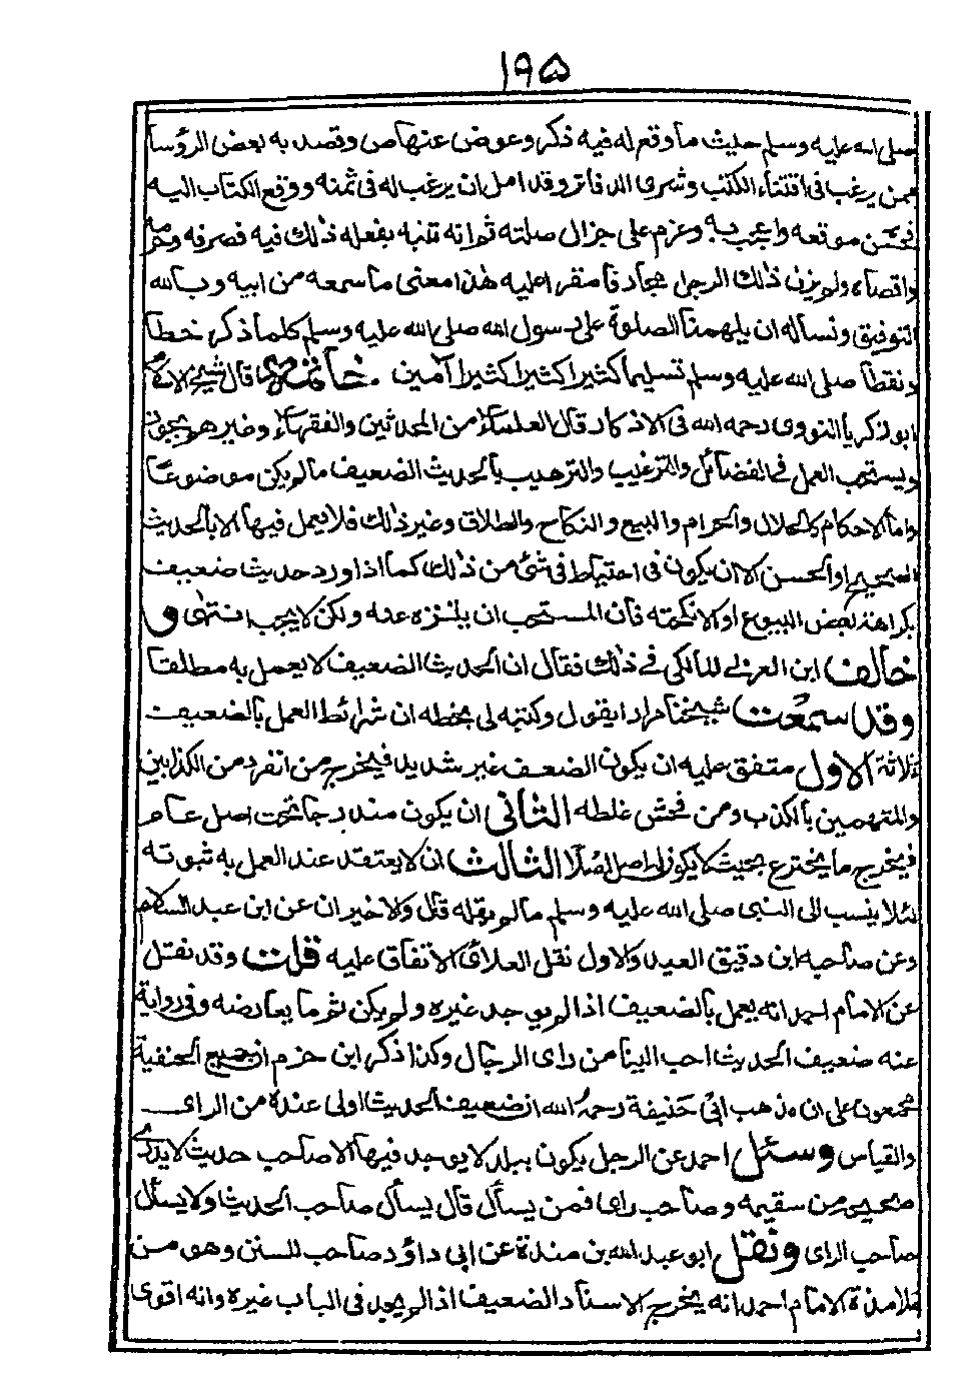 ١٩۵
صلى الله عليه وسلم حيث ما وقع له فيه ذكر وعوض عنها ص وقصد به بعض الرؤسا
ممن يرغب فى اقتناء الكتب وشرى الدفاتر وقد امل ان يرغب له فى ثمنه ووقع الكتاب اليه
فحسن موقعه واعجب به وعزم على جزال صلته ثم انه تنبه بفعله ذلك فيه فصرفه وحرمه
واقصاه ولم يزل ذلك الرجل محارفا مقترا عليه هذا معنى ما سمعه من ابيه وبالله
التوفيق ونساله ان يلهمنا الصلوة على رسول الله صلى الله عليه وسلم كلما ذكر خطا
ونقطا صلى الله عليه وسلم تسليما كثيرا كثيرا كثيرا آمين . خاتمة قال شيخ الاسلام
ابو زكريا النووى رحمه الله فى الاذكار قال العلماء من المحدثين والفقهاء وغيرهم يجوز
ويستحب العمل فى الفضائل والترغيب والترهيب بالحديث الضعيف مالم يكن موضوعا
واما الاحكام كالحلال والحرام والبيع والنكاح والطلاق وغير ذلك فلا يعمل فيها الا بالحديث
الصحيح او الحسن الا ان يكون فى احتياط فى شئ من ذلك كما اذا ورد حديث ضعيف
بكراهة بعض البيوع او الانكحة فان المستحب ان يتنزه عنه ولكن لا يجب انتهى و
خالف ابن العربى المالكى فى ذلك فقال ان الحديث الضعيف لا يعمل به مطلقا
وقد سمعت شيخنا مرارا يقول وكتبه لى بخطه ان شرائط العمل بالضعيف
ثلاثة الاول متفق عليه ان يكون الضعف غير شديد فيخرج من انفرد من الكذابين
والمتهمين بالكذب ومن فحش غلطه الثانى ان يكون مندرجا تحت اصل عام
فيخرج ما يخترع بحيث لا يكون له اصل اصلا الثالث ان لا يعتقد عند العمل به ثبوته
لئلا ينسب الى النبى صلى الله عليه وسلم مالم يقله قال والاخيران عن ابن عبد السلام
وعن صاحبه ابن دقيق العيد والاول نقل العلائى الاتفاق عليه قلت وقد نقل
عن الامام احمد انه يعمل بالضعيف اذا لم يوجد غيره ولم يكن ثم ما يعارضه وفى رواية
عنه ضعيف الحديث احب الينا من راى الرجال وكذا ذكر ابن حزم ان جميع الحنفية
مجمعون على ان مذهب ابى حنيفة رحمه الله ان ضعيف الحديث اولى عنده من الراى
والقياس وسئل احمد عن الرجل يكون ببلد لا يوجد فيها الا صاحب حديث لا يدرى
صحيحه من سقيمه وصاحب راى فمن يسأل قال يسأل صاحب الحديث ولا يسأل
صاحب الراى ونقل ابو عبد الله بن مندة عن ابى داؤد صاحب السنن وهو من
تلامذة الامام احمد انه يخرج الاسناد الضعيف اذا لم يجد فى الباب غيره وانه اقوى